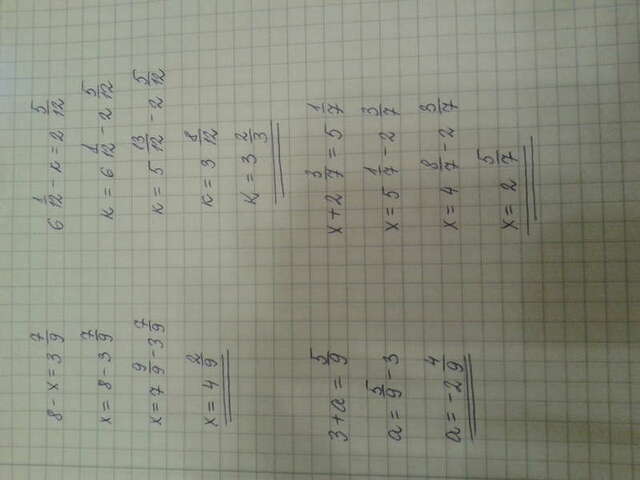 8 - x = 3 7/9
x = 8 - 3 7/9
x = 7 9/9 - 3 7/9
x = 4 2/9
6 1/12 - к = 2 5/12
к = 6 1/12 - 2 5/12
к = 5 13/12 - 2 5/12
к = 3 8/12
к = 3 2/3
3 + a = 5/9
a = 5/9 - 3
a = -2 4/9
x + 2 3/7 = 5 1/7
x = 5 1/7 - 2 3/7
x = 4 8/7 - 2 3/7
x = 2 5/7